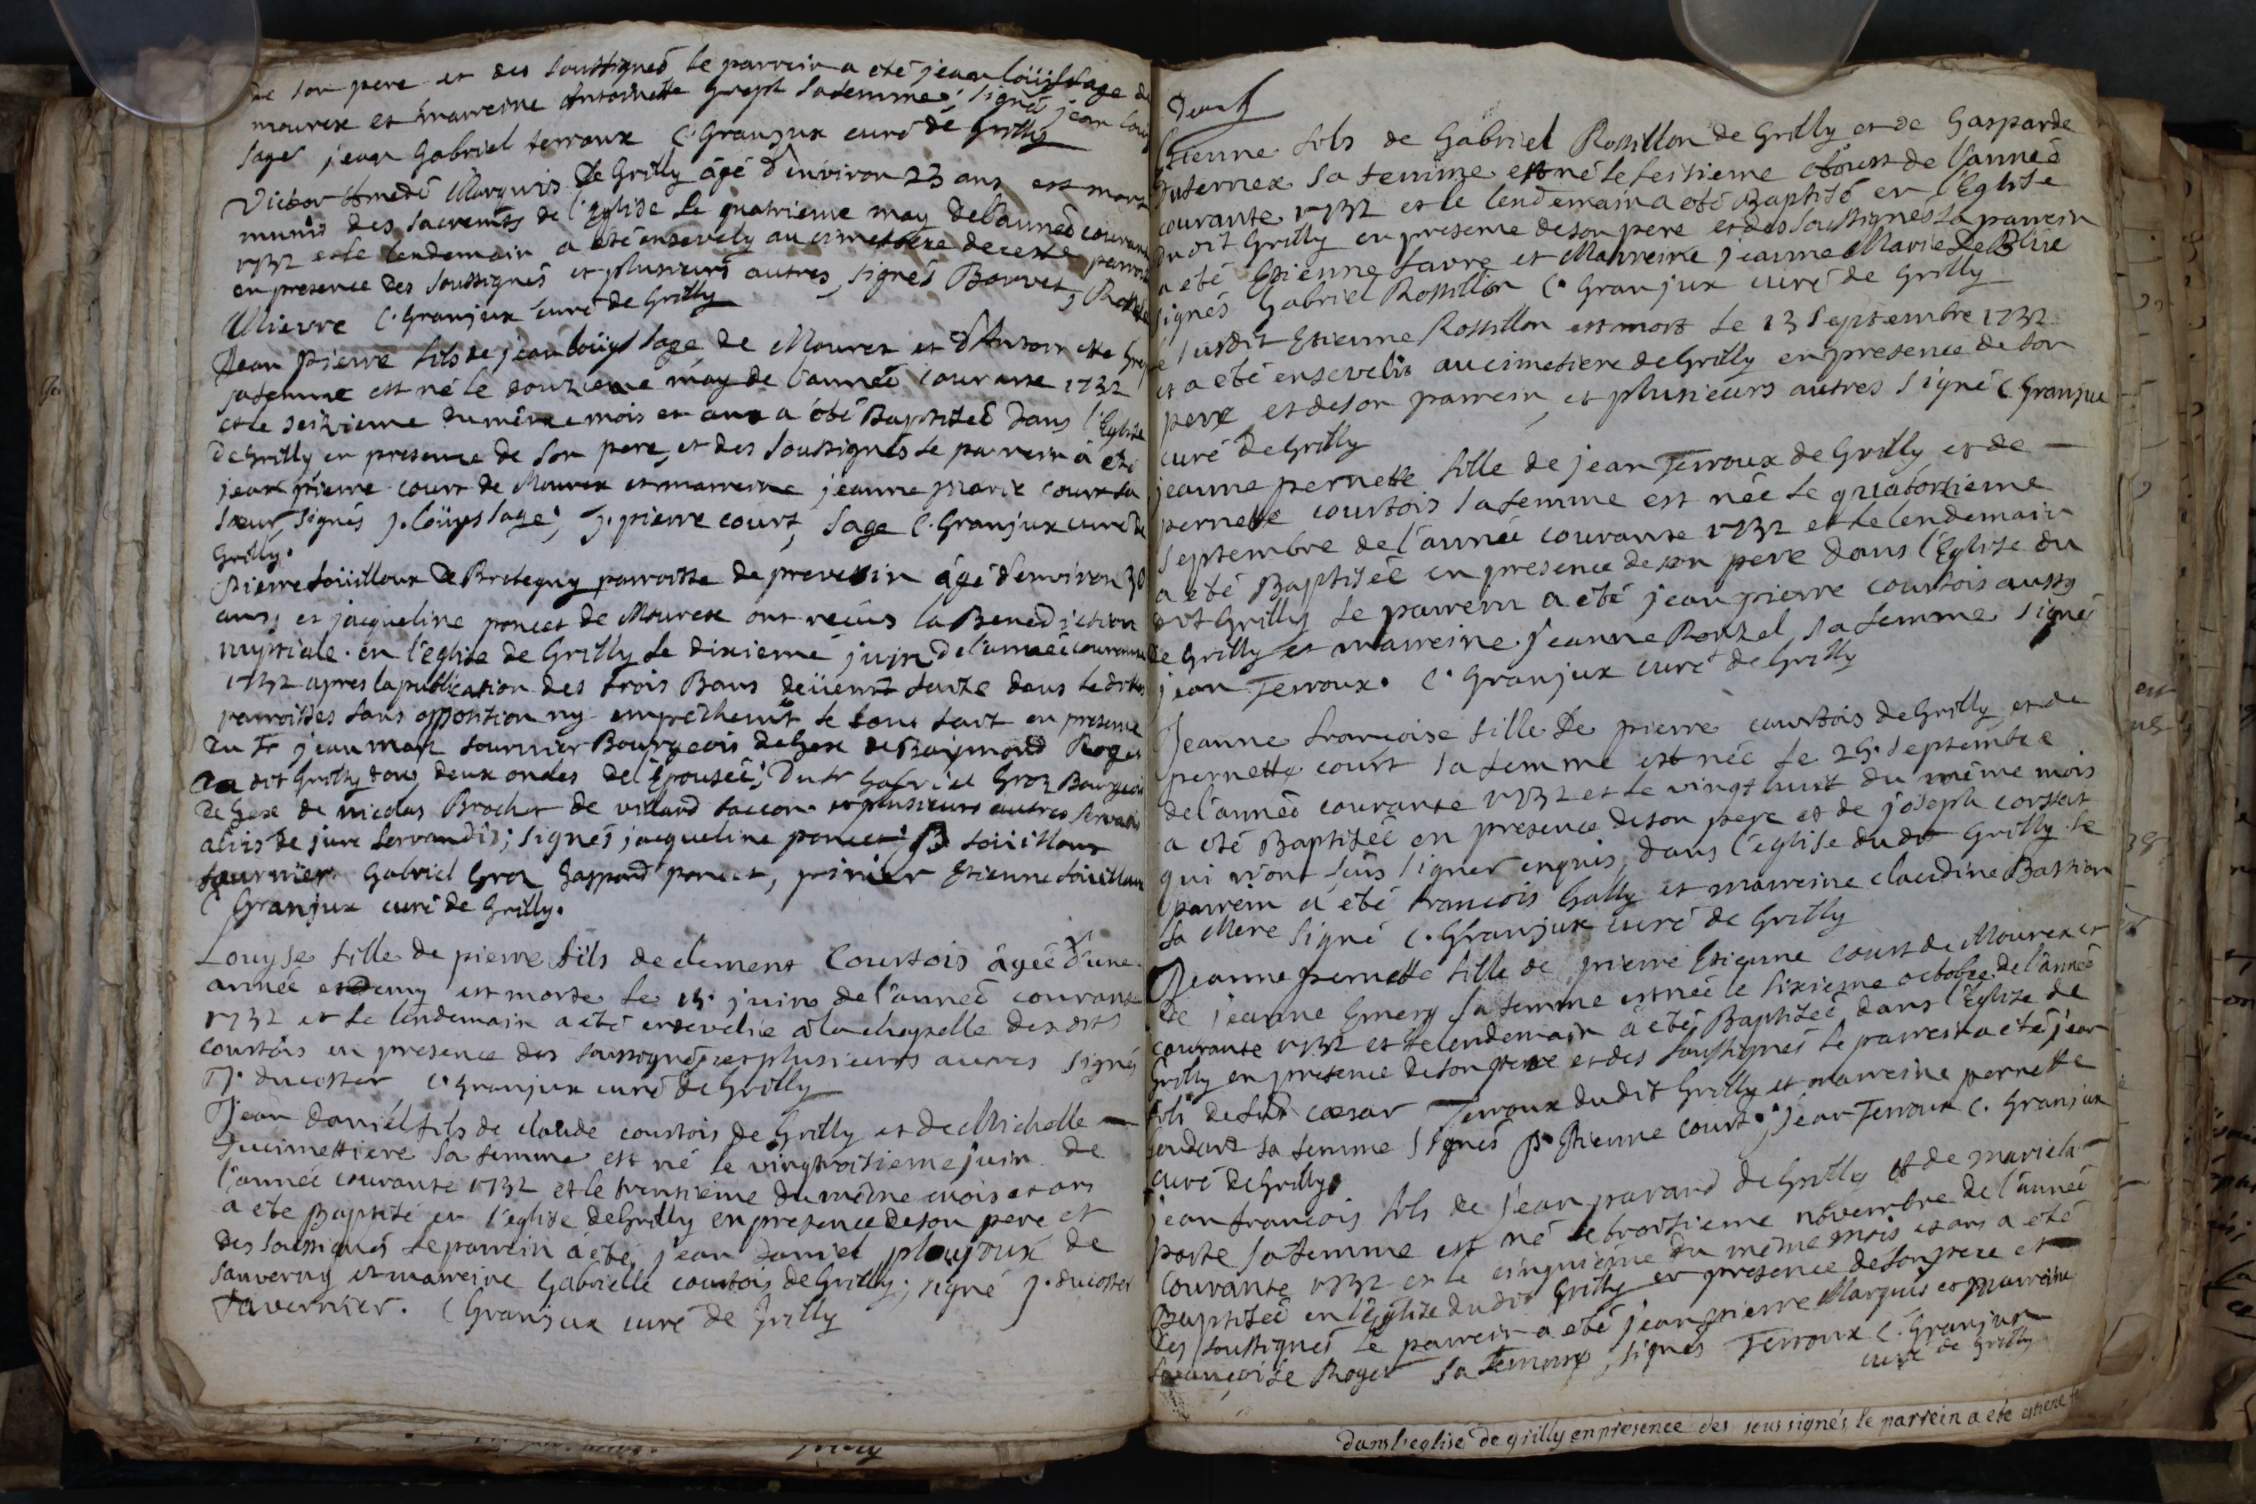 de son pere et des soussignés, le parrein a eté jean loüis sage de
mourex et marreine Antoinette Grosp sa femme; signé jean louis
sage jean Gabriel terroux C. Granjux curé de Grilly
Victor Amedé Marquis De Grilly âgé d'environ 23 ans est mort
munis des sacremts de l'Eglise le quatrieme may de l'anneé courante
1732 et le lendemain a été ensevely au cimettiere de cette parroisse
en presence des soussignés et plusieurs autres, signés Bonvet,
Wlievre C. Granjux curé de Grilly
Jean pierre fils de jean loüys sage de Mourex et d'Antoinette
sa femme est né le douzieme may de l'anneé courante 1732
et le seizieme du même mois et an a été Baptiseé dans l'Eglise
de Grilly en presence de son pere, et des soussignés le parrein a eté
jean pierre court de Mourex et marreine jeanne marie court sa
sœur, signés j. loüys sage, j. pierre court, sage C. Granjux curé de
Grilly.
Pierre soüilloux De Bretegny parroisse de prevessin âgé d'environ 30
ans, et jacqueline poncet de Mourex ont reçus la Benediction
nuptiale en l'eglise de Grilly le dixieme juin de l'anneé courante
1732 apres la publication des trois Bans deüemt faite dans les dittes
parroisses sans opposition ny empechemt le tout fait en presence
du Sr jean marc fournier Bourgeois de Gex de Raymond Roger
du dit Grilly tous deux oncles de l'Epouseé; Du Sr Gabriel Groz Bourgeois
de Gex de nicolas Brochet de villard taccon et plusieurs autres servatis
aliis de jure servandis; signés jacqueline poncet P. soüilloux
fournier Gabriel Groz Gaspard poncet, Etienne soüilloux
C Granjux curé de Grilly.
Louyse fille de pierre fils de clement Courtois âgeé d'une
année et demy est morte le 15. juin de l'anneé courante
1732 et le lendemain a été ensevelie a la chapelle des dits
courtois en presence des soussignés et plusieurs autres signé
J. ducoster C. Granjux curé de Grilly
Jean Daniel fils de claude courtois de Grilly et de Michelle
Ducimettiere sa femme est né le vingtroisieme juin de
l'année courante 1732 et le trentieme du même mois et an
a été Baptisé en l'eglise de Grilly en presence de son pere et
des soussignés le parrein a eté jean daniel ploujoux de
sauverny et marreine Gabrielle courtois de Grilly; signé J. ducoster
Tavernier. C Granjux curé de Grilly
Etienne fils de Gabriel Rossillon de Grilly et de Gasparde
Juternex sa femme est né le seitieme Aoust de l'anneé
courante 1732 et le lendemain a eté Baptisé en l'Eglise
du dit Grilly en presence de son pere et des soussignés le parrein
a eté Etienne favre et Marreine jeanne Marie De Blue
signés Gabriel Rossillon C. Granjux curé de Grilly
le susdit Etienne Rossillon est mort le 13 Septembre 1732
et a eté ensevelis au cimetiere de Grilly en presence de son
pere et de son parrein, et plusieurs autres signé C Granjux
curé de Grilly
jeanne pernette fille de jean Terroux de Grilly et de
pernette courtois sa femme est née le quatortieme
septembre de l'année courante 1732 et le lendemain
a eté Baptiseé en presence de son pere dans l'Eglise du
dit Grilly le parrein a été jean pierre courtois aussy
de Grilly et marreine jeanne Ronzel sa femme signés
jean Terroux. C. Granjux curé de Grilly
Jeanne francoise fille De pierre courtois de Grilly et de
pernette court sa femme est née le 25. septembre
de l'anneé courante 1732 et le vingt huit du même mois
a eté Baptiseé en presence de son pere et de joseph
qui n'ont sçus signer enquis, dans l'eglise du dit Grilly le
parrein a été francois Gally et marreine claudine Bastian
sa Mere signé C. Granjux curé de Grilly
Jeanne pernette fille de pierre Etienne court de Mourex et
de jeanne Emery sa femme est née le sixieme octobre de l'anneé
courante 1732 et le lendemain a eté Baptiseé dans l'Eglise de
Grilly en presence de son pere et des soussignés le parrein a eté jean
fils de feu cæsar Terroux du dit Grilly et marreine pernette
sa femme signés P. Etienne court, jean Terroux C. Granjux
curé de Grilly.
jean francois fils de jean pavard de Grilly et de marie la
poste sa femme est né le troisieme novembre de l'anneé
courante 1732 et le cinquieme du même mois et an a eté
Baptiseé en l'Eglise du dit Grilly en presence de son pere et
des soussignés le parrein a eté jean pierre Marquis et marreine
françoise Roger sa femme, signés Terroux C. Granjux
curé de Grilly
dans l'eglise de grilly en presence des sous signés, le parrein a ete